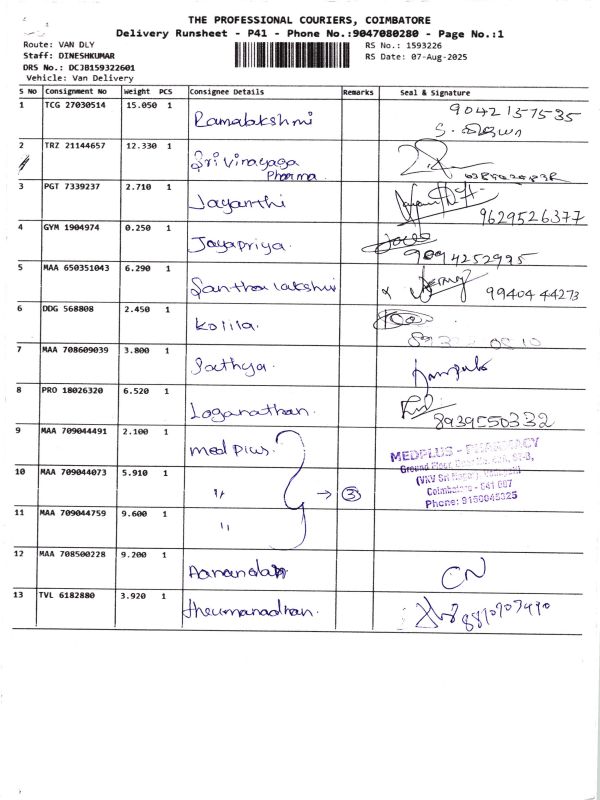 THE PROFESSIONAL COURIERS, COIMBATORE
Delivery Runsheet - P41 - Phone No.:9047080280 - Page No.:1
Route: VAN DLY
RS No.: 1593226
Staff: DINESHKUMAR
RS Date: 07-Aug-2025
DRS No.: DCJB159322601
Vehicle: Van Delivery
S No Consignment No Weight PCS Consignee Details Remarks Seal & Signature
1 TCG 27030514 15.050 1 Ramalakshmi 9042157535
2 TRZ 21144657 12.330 1 Sri Vinayaga
Pharma
3 PGT 7339237 2.710 1 Jayanthi 9629526377
4 GYM 1904974 0.250 1 Jayapriya. 9094252995
5 MAA 650351043 6.290 1 Santhou lakshmi x 99404 44273
6 DDG 568808 2.450 1
7 MAA 708609039 3.800 1 Sathya.
8 PRO 18026320 6.520 1 Loganathan. 8939550332
9 MAA 709044491 2.100 1 med plus. MEDPLUS - PHARMACY
Ground Floor,
10 MAA 709044073 5.910 1 " → 3 (VRV Sri Nagar),
Coimbatore - 641 007
Phone: 9150045325
11 MAA 709044759 9.600 1 "
12 MAA 708500228 9.200 1 CN
13 TVL 6182880 3.920 1 8870707490